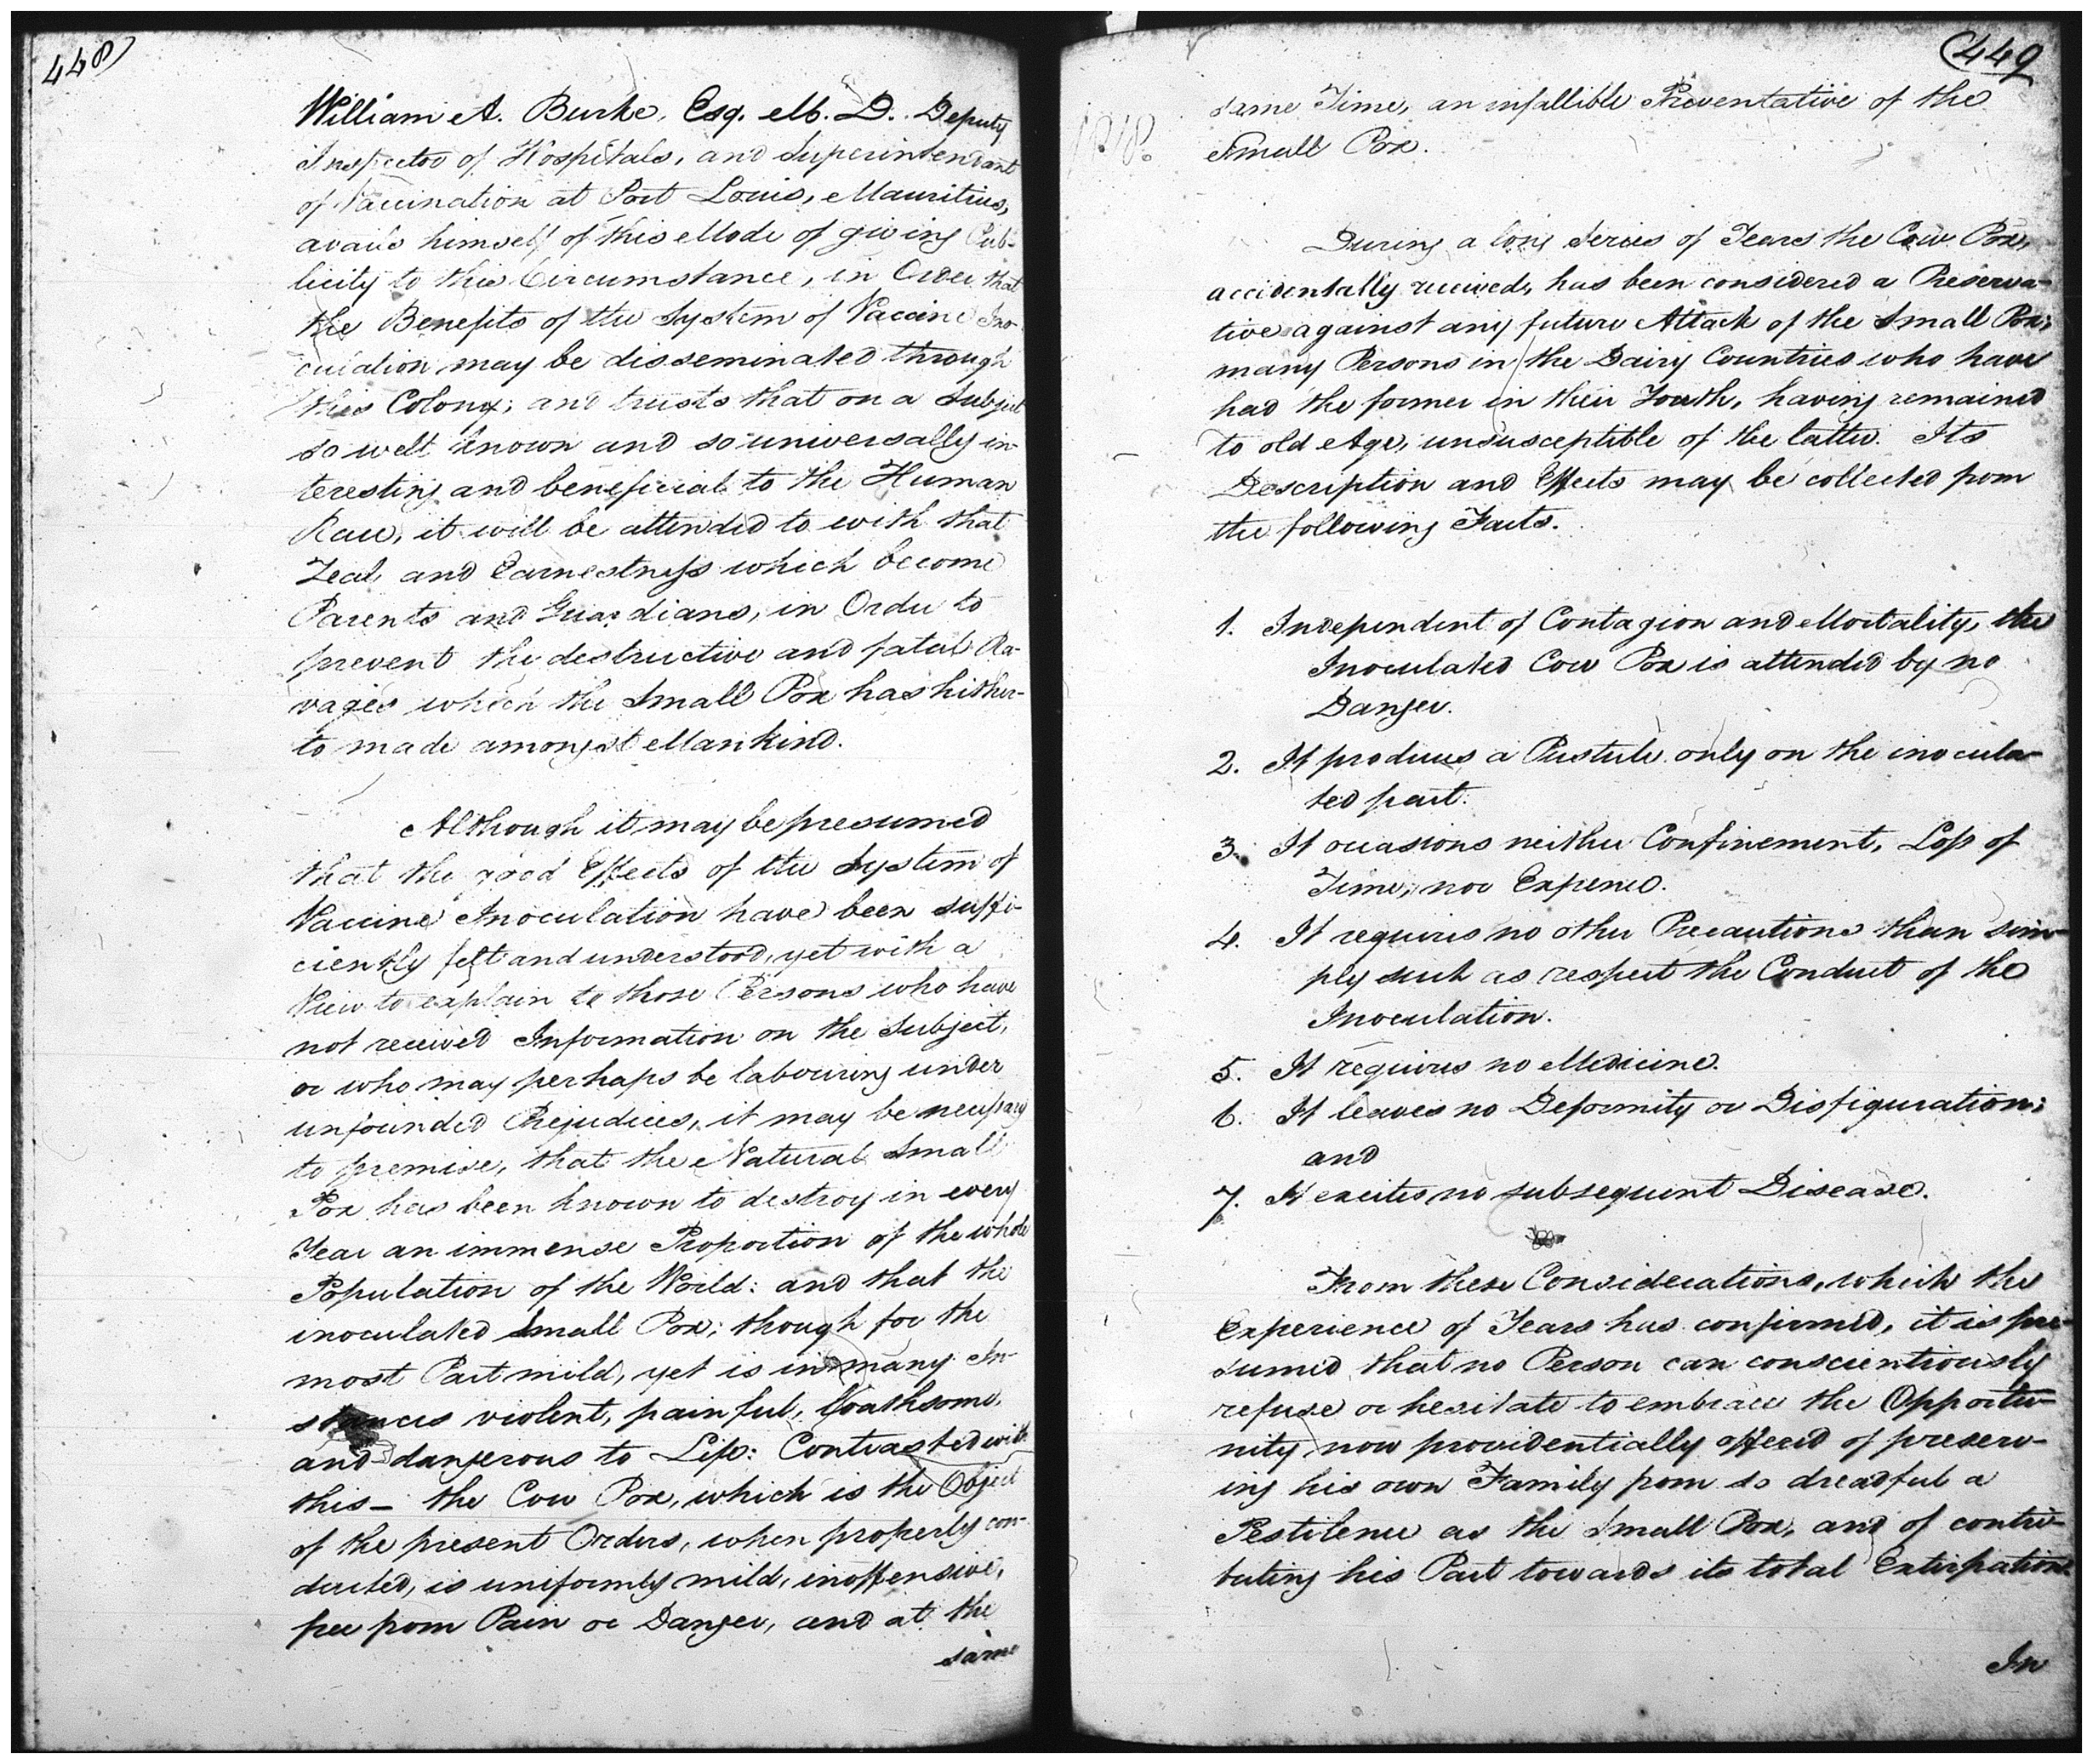 448)
William A. Burke, Esq. M. D. Deputy
Inspector of Hospitals, and Superintendant
of Vaccination at Port Louis, Mauritius,
avails himself of this Mode of giving Pub-
licity to this Circumstance, in Order that
the Benefits of the System of Vaccine Ino-
culation may be disseminated through
this Colony; and trusts that on a Subject
so well known and so universally in-
teresting and beneficial to the Human
Race, it will be attended to with that
Zeal and Earnestness which become
Parents and Guardians, in Order to
prevent the destructive and fatal Ra-
vages which the Small Pox has hither-
to made amongst Mankind.
Although it may be presumed
that the good Effects of the System of
Vaccine Inoculation have been suffi-
ciently felt and understood, yet with a
View to explain to those Persons who have
not received Information on the Subject,
or who may perhaps be labouring under
unfounded Prejudices, it may be necessary
to premise, that the Natural Small
Pox has been known to destroy in every
Year an immense Proportion of the whole
Population of the World: and that the
inoculated Small Pox; though for the
most Part mild, yet is in many In-
stances violent, painful, loathsome,
and dangerous to Life: Contrasted with
this - the Cow Pox, which is the Object
of the present Orders, when properly con-
ducted, is uniformly mild, inoffensive,
free from Pain or Danger, and at the
same
(449
1818.
same Time, an infallible Preventative of the
Small Pox.
During a long Series of Years the Cow Pox,
accidentally received, has been considered a Preserva-
tive against any future Attack of the Small Pox;
many Persons in the Dairy Countries who have
had the former in their Youth, having remained
to old Age, unsusceptible of the latter. Its
Description and Effects may be collected from
the following Facts.
1. Independent of Contagion and Mortality, the
Inoculated Cow Pox is attended by no
Danger.
2. It produces a Pustule only on the inocula-
ted part.
3. It occasions neither Confinement, Loss of
Time, nor Expence.
4. It requires no other Precautions than sim-
ply such as respect the Conduct of the
Inoculation.
5. It requires no Medicine.
6. It leaves no Deformity or Disfiguration;
and
7. It excites no subsequent Disease.
From these Considerations, which the
Experience of Years has confirmed, it is pre-
sumed that no Person can conscientiously
refuse or hesitate to embrace the Opportu-
nity now providentially offered of preserv-
ing his own Family from so dreadful a
Pestilence as the Small Pox, and of contri-
buting his Part towards its total Extirpation.
In